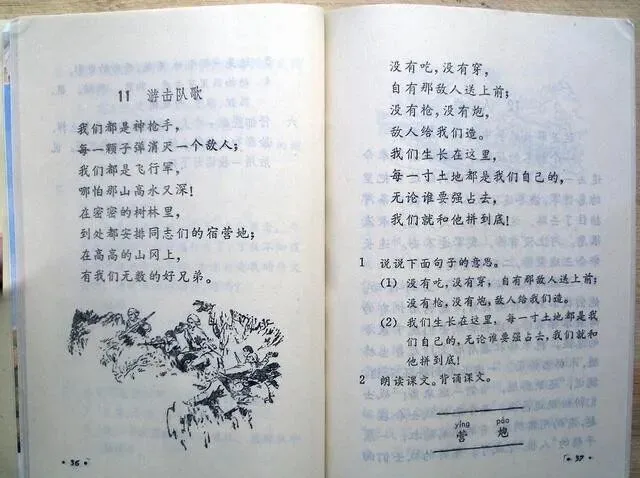 11 游击队歌
我们都是神枪手,
每一颗子弹消灭一个敌人;
我们都是飞行军,
哪怕那山高水又深!
在密密的树林里,
到处都安排同志们的宿营地;
在高高的山冈上,
有我们无数的好兄弟。
·36·
没有吃,没有穿,
自有那敌人送上前;
没有枪,没有炮,
敌人给我们造。
我们生长在这里,
每一寸土地都是我们自己的,
无论谁要强占去,
我们就和他拼到底!
1 说说下面句子的意思。
(1) 没有吃,没有穿,自有那敌人送上前;
没有枪,没有炮,敌人给我们造。
(2) 我们生长在这里,每一寸土地都是我
们自己的,无论谁要强占去,我们就和
他拼到底!
2 朗读课文。背诵课文。
yíng pào
营 炮
·37·